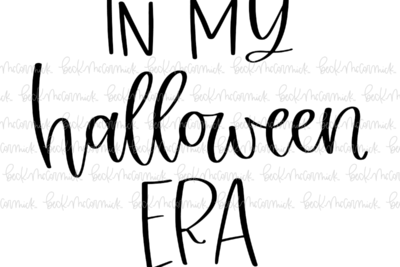 IN MY
halloween
ERA